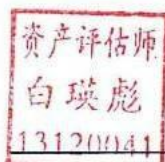 资产评估师
白瑛彪
13120041